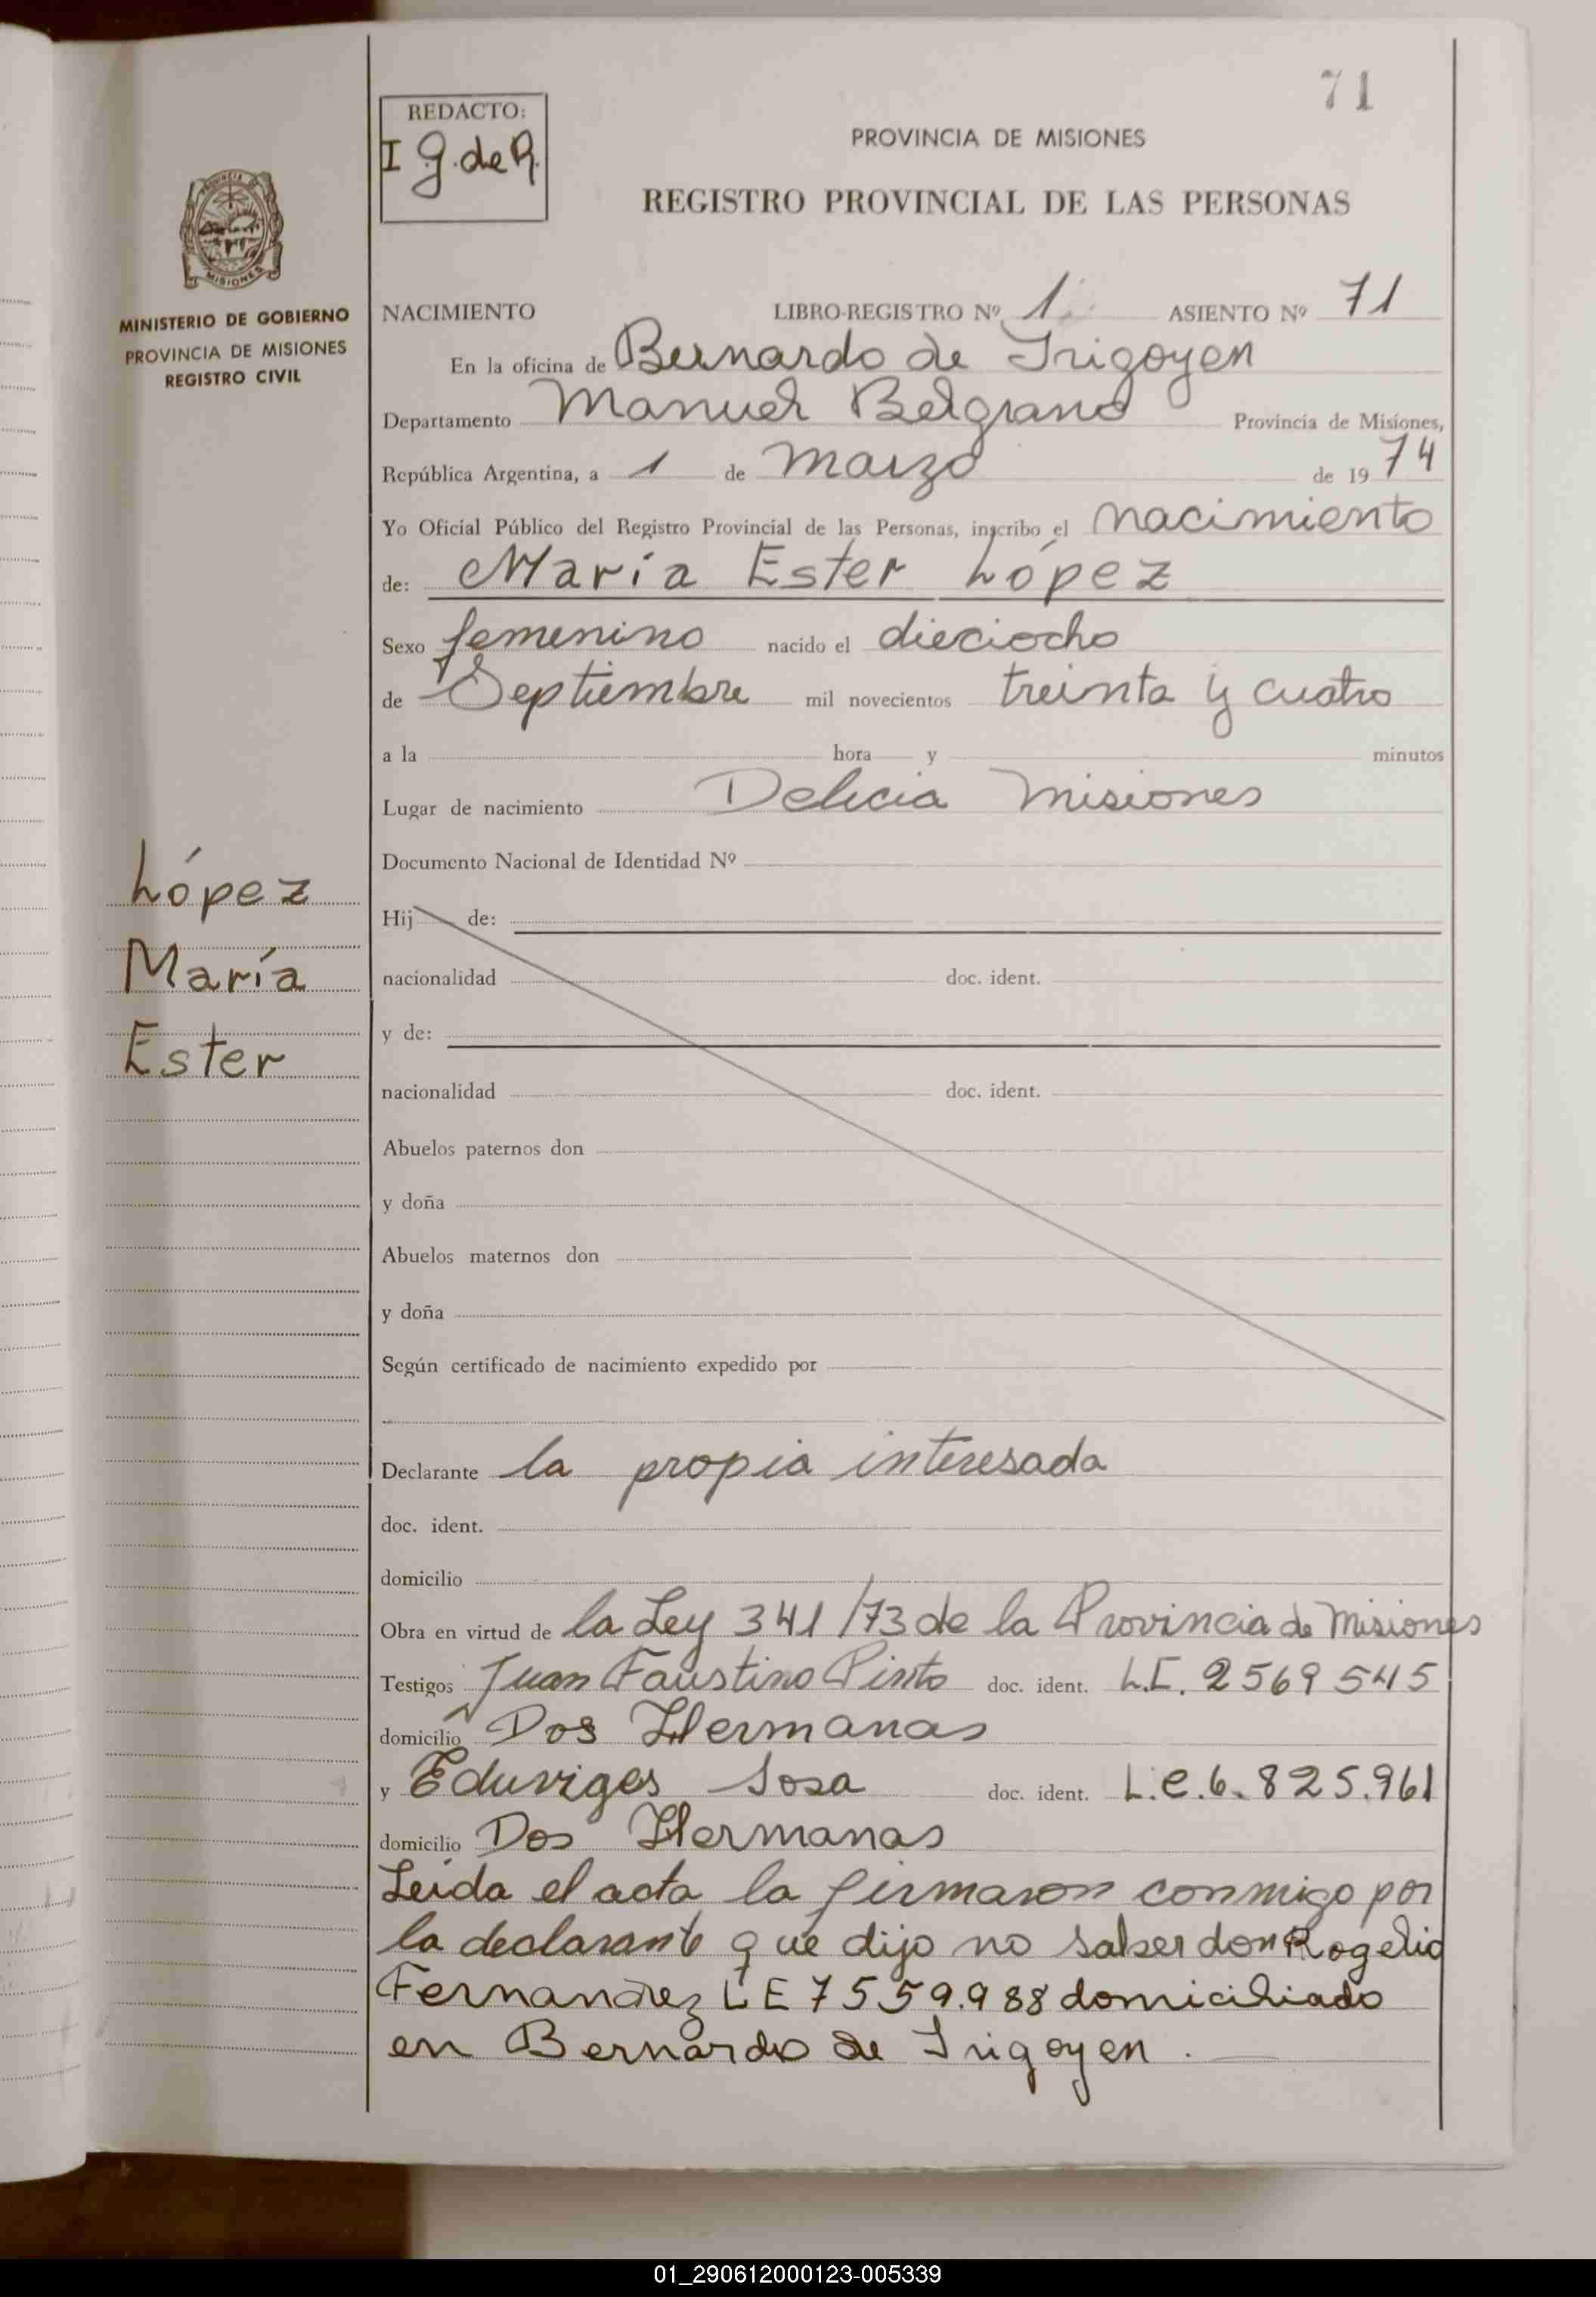 71
REDACTO:
I G. de R.
PROVINCIA DE MISIONES
REGISTRO PROVINCIAL DE LAS PERSONAS
PROVINCIA DE
MISIONES
MINISTERIO DE GOBIERNO
PROVINCIA DE MISIONES
REGISTRO CIVIL
NACIMIENTO LIBRO-REGISTRO Nº 1 ASIENTO Nº 71
En la oficina de Bernardo de Irigoyen
Departamento Manuel Belgrano Provincia de Misiones,
República Argentina, a 1 de marzo de 1974
Yo Oficial Público del Registro Provincial de las Personas, inscribo el nacimiento
de: María Ester López
Sexo femenino nacido el dieciocho
de Septiembre mil novecientos treinta y cuatro
a la hora y minutos
Lugar de nacimiento Delicia Misiones
Documento Nacional de Identidad Nº
López
María
Ester
Hij de:
nacionalidad doc. ident.
y de:
nacionalidad doc. ident.
Abuelos paternos don
y doña
Abuelos maternos don
y doña
Según certificado de nacimiento expedido por
Declarante la propia interesada
doc. ident.
domicilio
Obra en virtud de la Ley 341/73 de la Provincia de Misiones
Testigos Juan Faustino Pinto doc. ident. L.E. 2569545
domicilio Dos Hermanas
y Eduviges Sosa doc. ident. L.e.6.825.961
domicilio Dos Hermanas
Leida el acta la firmaron conmigo por
la declarante que dijo no saber don Rogelio
Fernandez LE 7559.988 domiciliado
en Bernardo de Irigoyen.
01_290612000123-005339